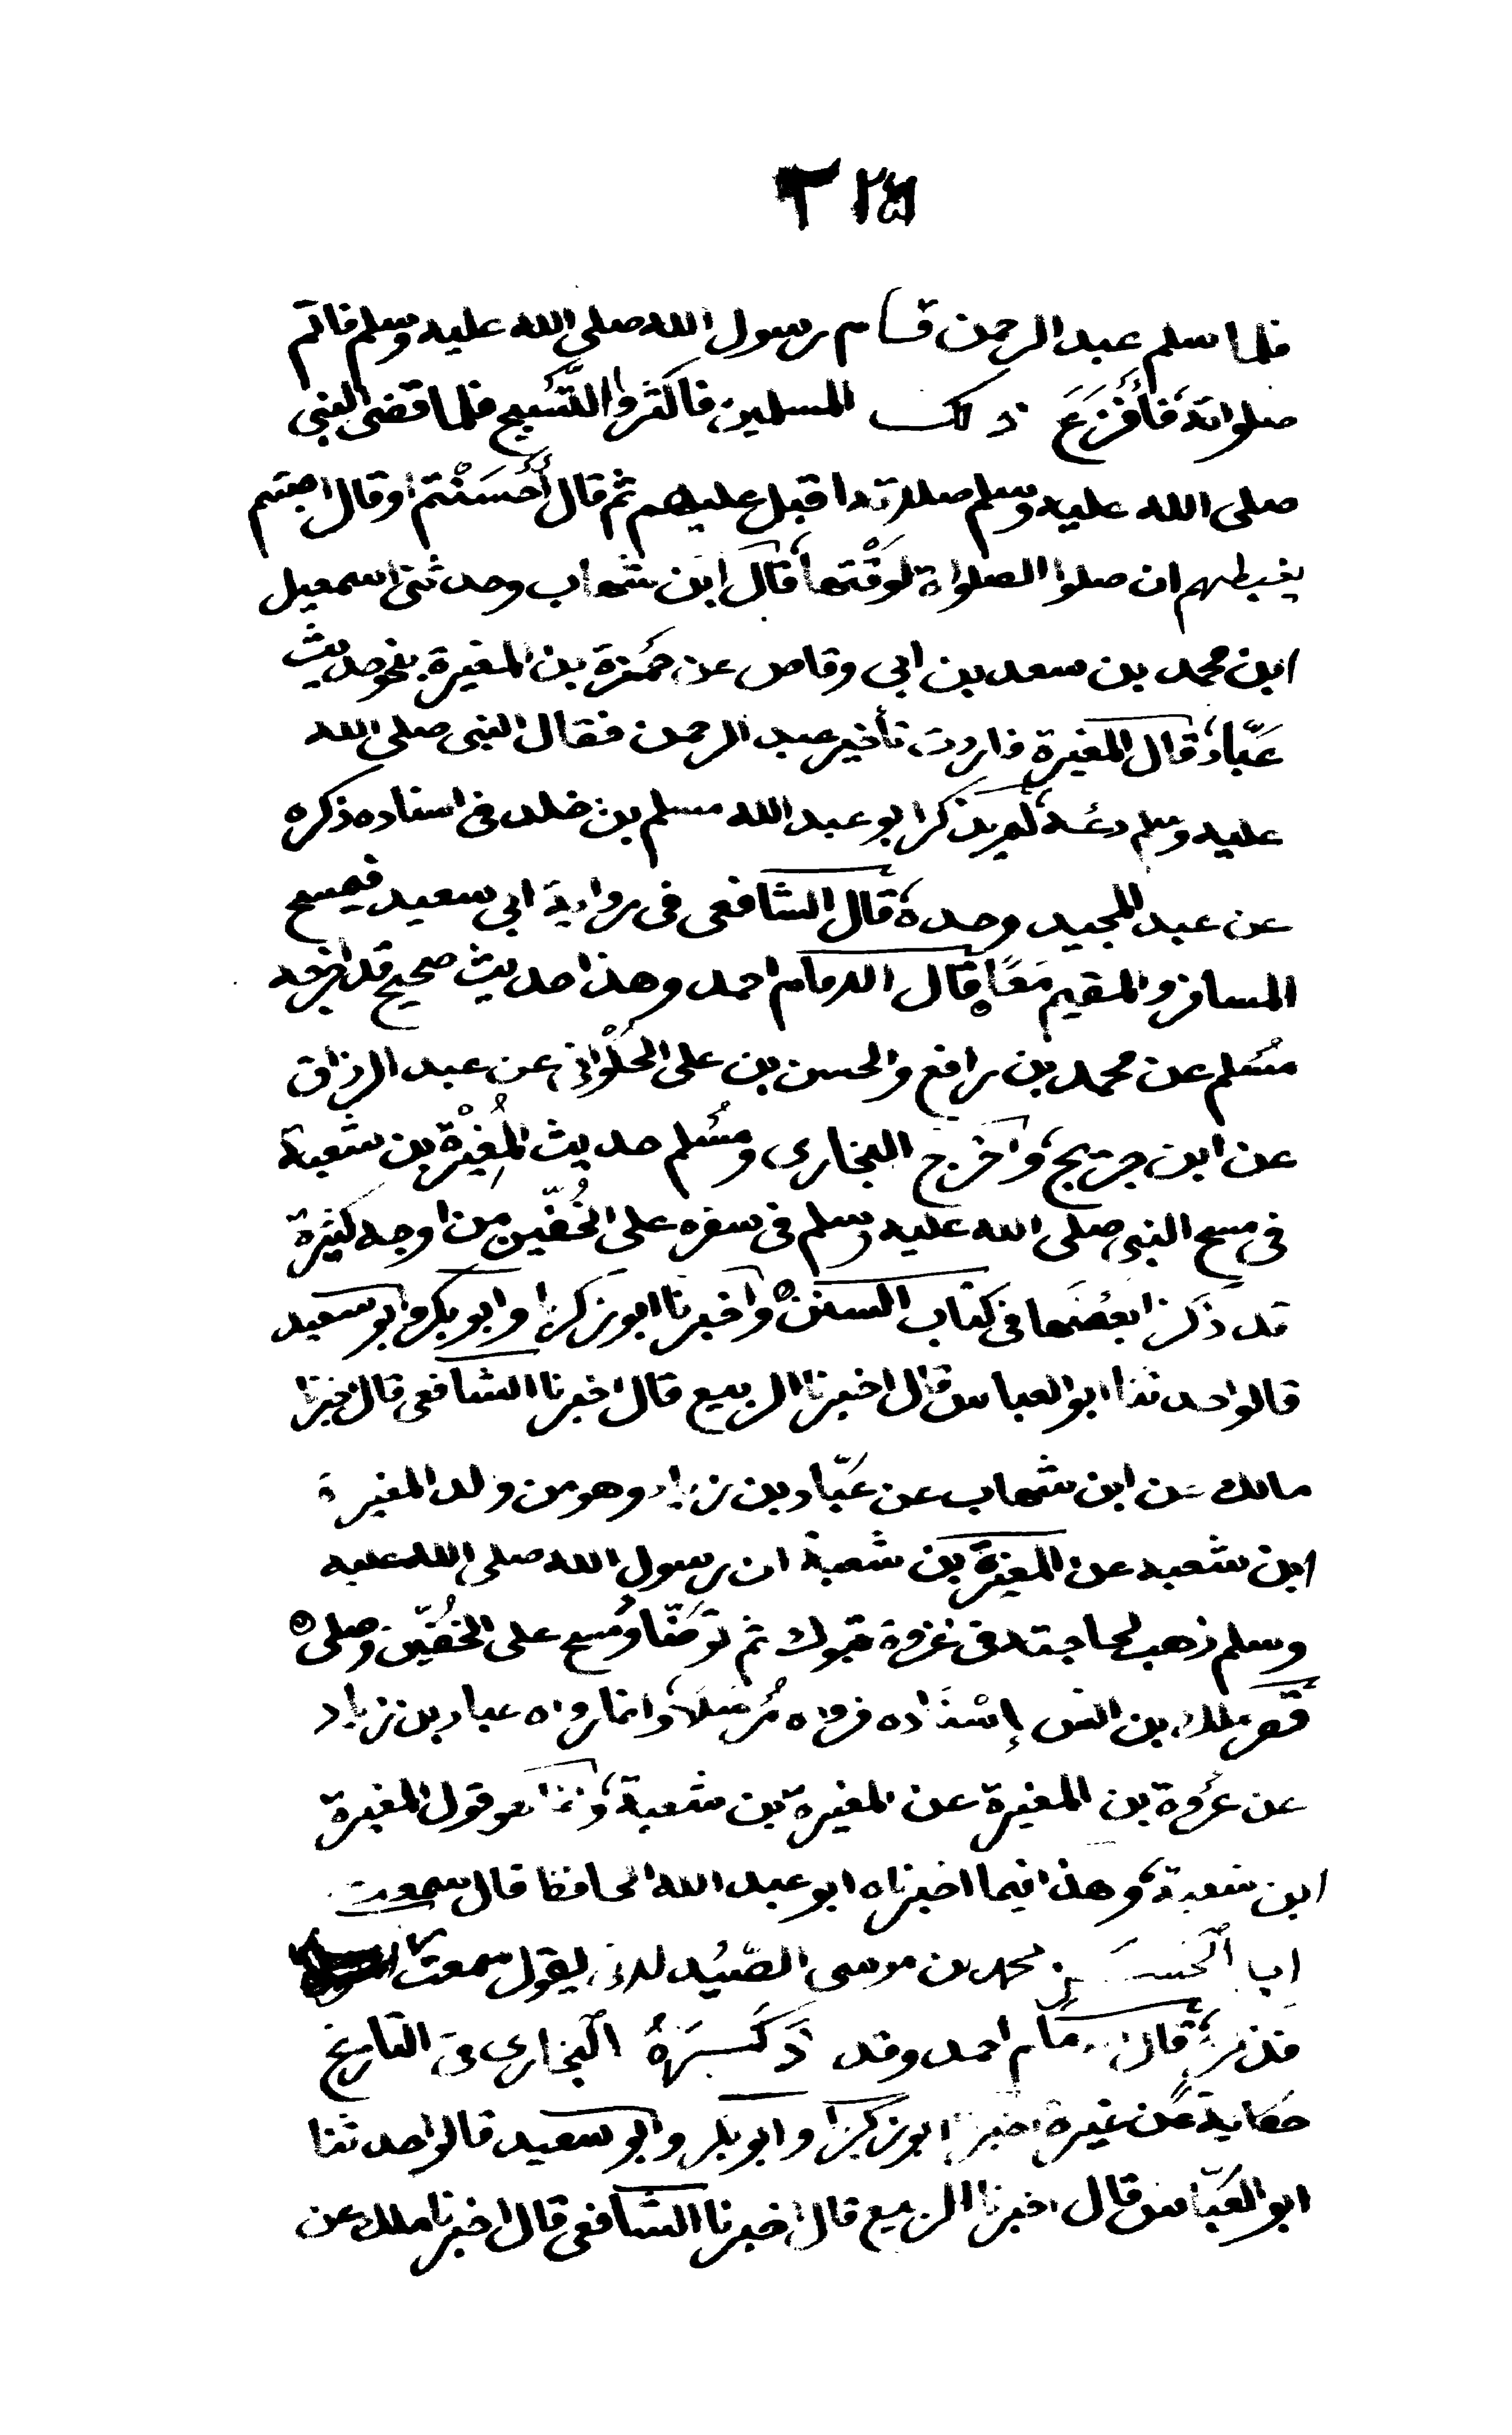 فلما سلم عبد الرحمن قام رسول الله صلى الله عليه وسلم فاتم
صلواته فأفزع ذلك المسلمين فاكثروا التسبيح فلما قضى النبي
صلى الله عليه وسلم صلاته اقبل عليهم ثم قال أحسنتم او قال اصبتم
يغبطهم ان صلوا الصلواة لوقتها قال ابن شهاب وحدثنى اسمعيل
ابن محمد بن سعد بن ابى وقاص عن حمزة بن المغيرة بنحو حديث
عبّاد قال المغيرة فاردت تأخير عبد الرحمن فقال النبى صلى الله
عليه وسلم دعه لم يذكر ابو عبد الله مسلم بن خلد فى اسناده ذكره
عن عبد المجيد وحده قال الشافعى فى رواية ابى سعيد فيمسح
المسافر والمقيم معًا قال الامام احمد وهذا حديث صحيح قد اخرجه
مسلم عن محمد بن رافع والحسن بن على الحلوانى عن عبد الرزاق
عن ابن جريج واخرج البخارى ومسلم حديث المغيرة بن شعبة
فى مسح النبى صلى الله عليه وسلم فى سفره على الخُفّين من اوجه كثيرة
قد ذكرنا بعضها فى كتاب السنن واخبرنا ابو زكريا وابو بكر وابو سعيد
قالوا حدثنا ابو العباس قال اخبرنا الربيع قال اخبرنا الشافعى قال اخبرنا
مالك عن ابن شهاب عن عبّاد بن زياد وهو من ولد المغيرة
ابن شعبه عن المغيرة بن شعبة ان رسول الله صلى الله عليه
وسلم ذهب لحاجته فى غزوة تبوك ثم توضّا ومسح على الخُفّين وصلى
قصر ملك بن انس إسناده فرواه مُرسَلا وانما رواه عباد بن زياد
عن عروة بن المغيرة عن المغيرة بن شعبة هو قول المغيرة
ابن شعبة وهذا فيما اخبرناه ابو عبد الله الحافظ قال سمعت
ابا الحسن محمد بن موسى الصَّيدلانى يقول سمعت
فذكره قال الامام احمد وقد ذكره البخارى فى التاريخ
حكاية عن غيره اخبرنا ابو زكريا وابو بكر وابو سعيد قالوا حدثنا
ابو العبّاس قال اخبرنا الربيع قال اخبرنا الشافعى قال اخبرنا ملك عن